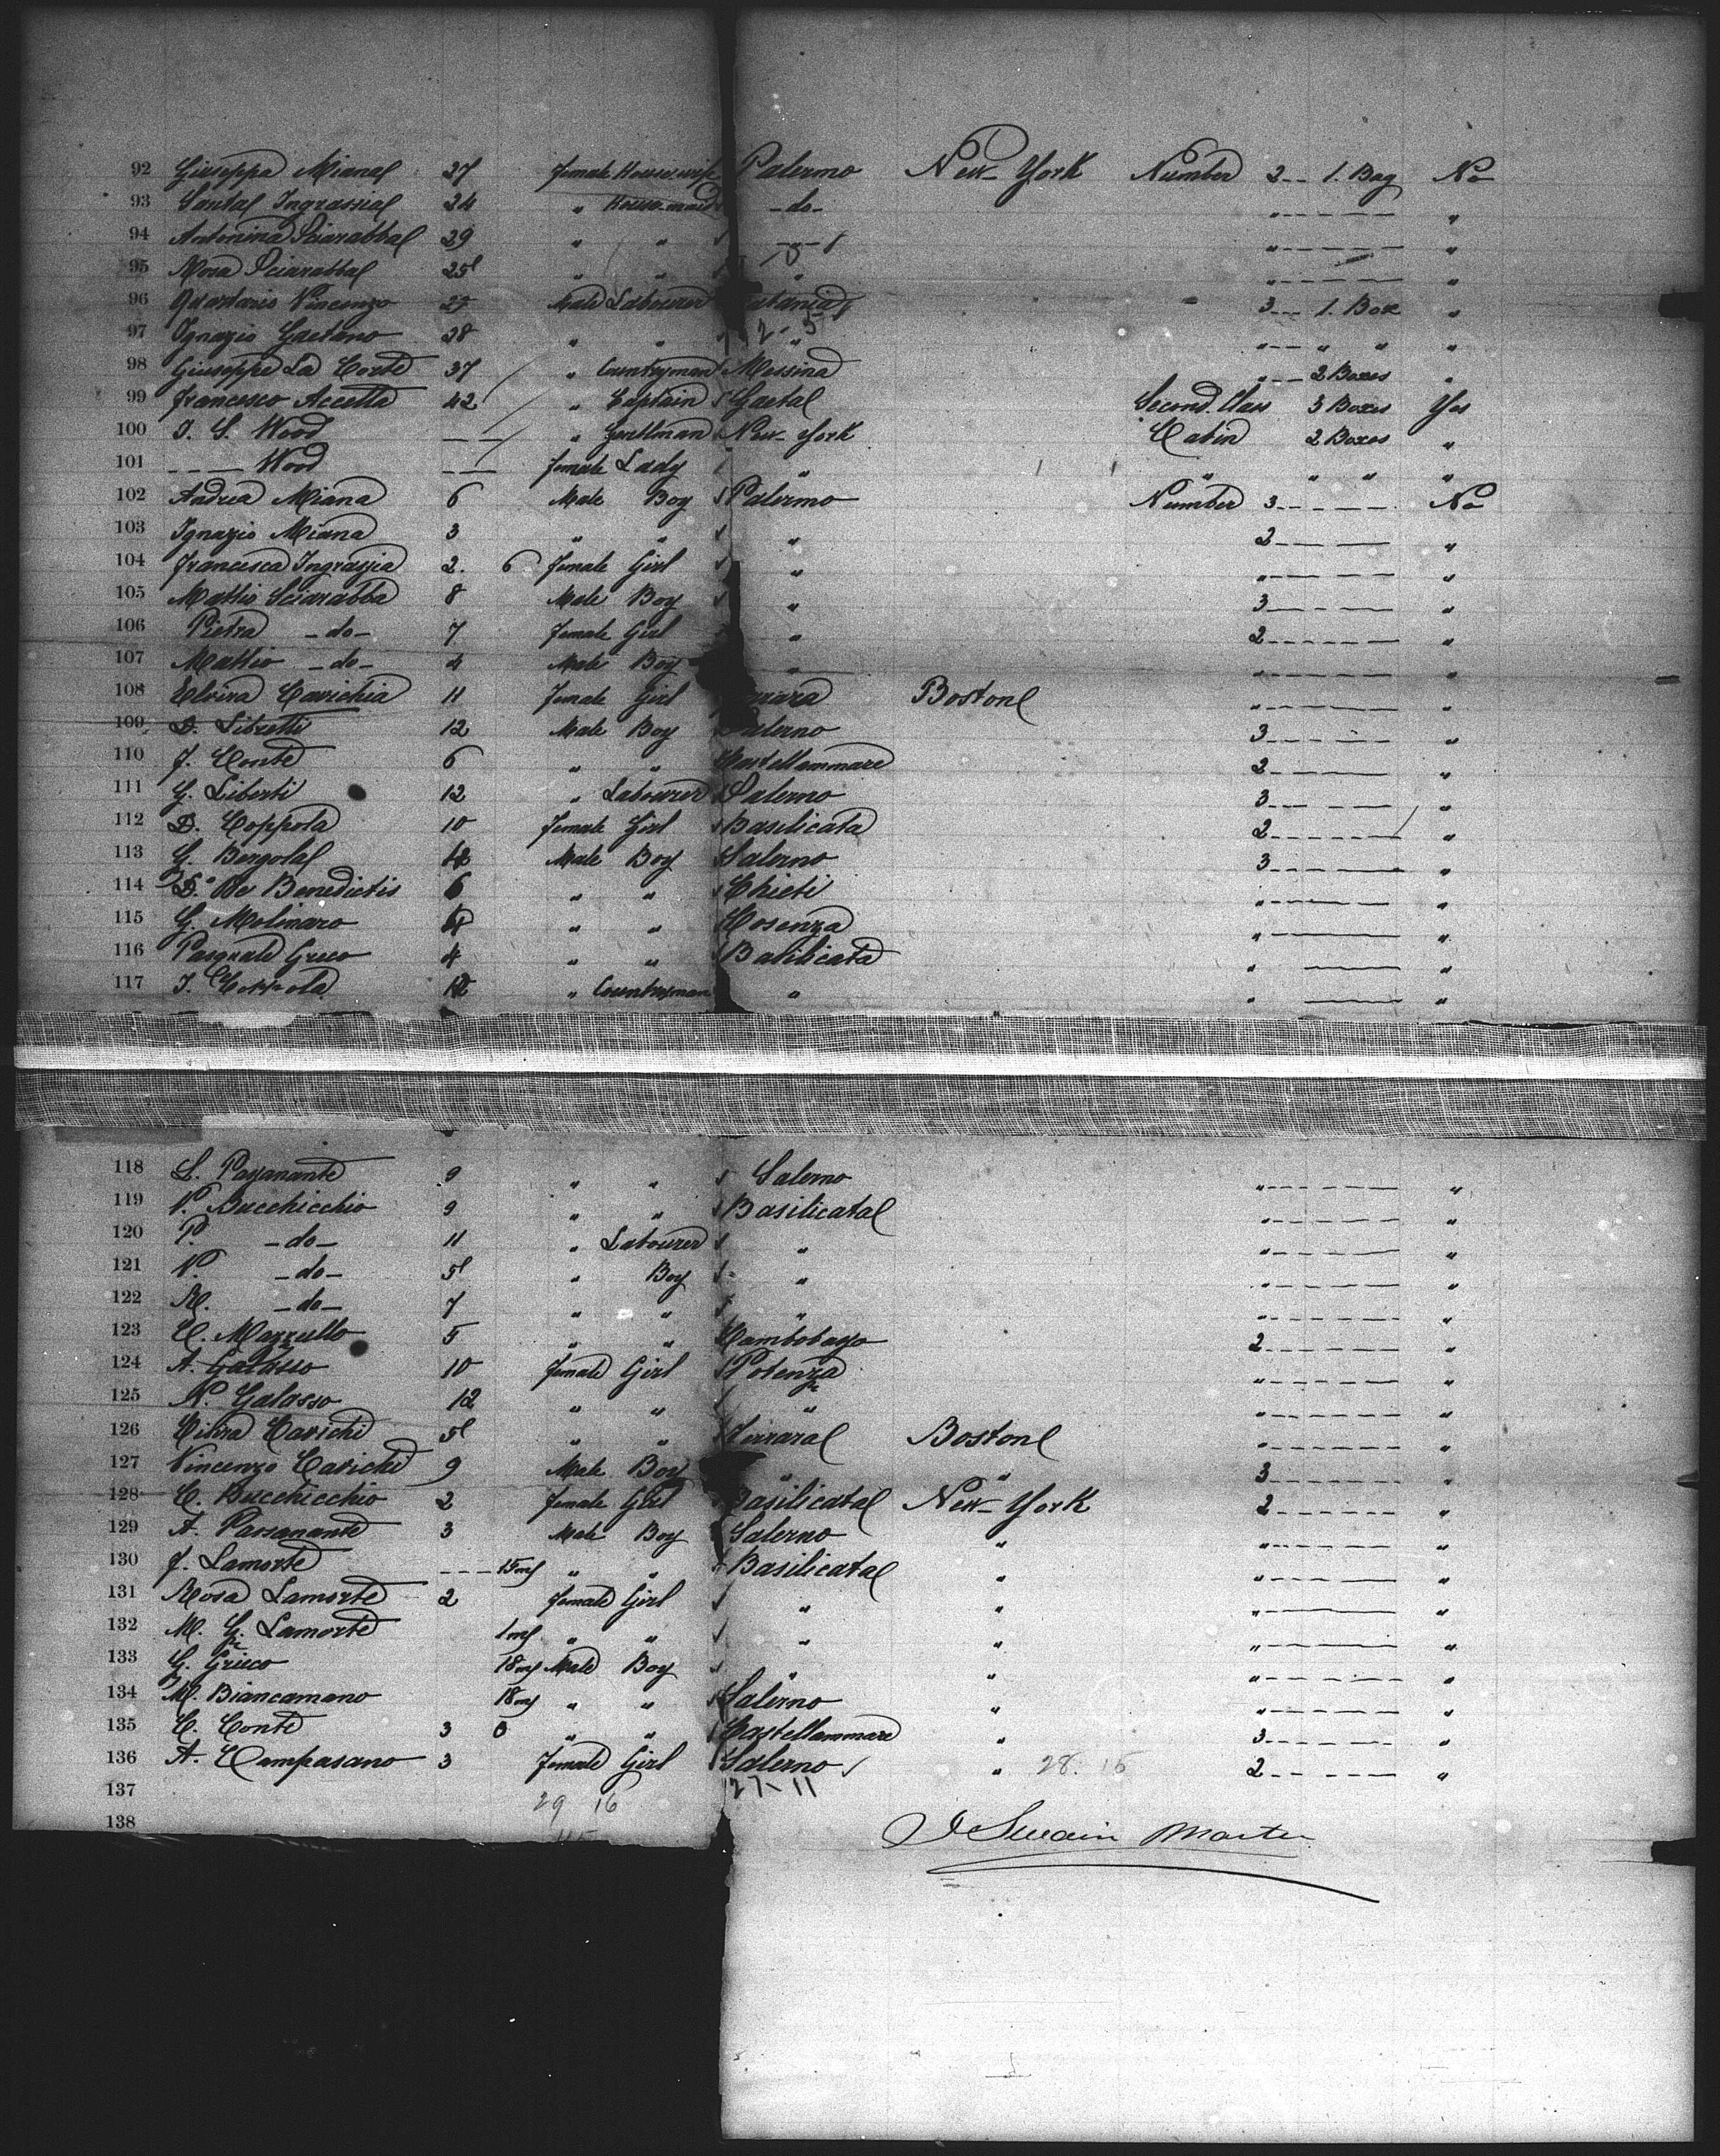 92 Giuseppa Miana 27 female Housewife Palermo New-York Number 2 -- 1. Bag No
93 Santa Ingrassia 24 " House-maid -do- " ---- "
94 Antonina Sciarabba 29 " " " ---- "
95 Rosa Sciarabba 25 " " " " ---- "
96 Quartario Vincenzo 27 Male Labourer Catania 3 --- 1. Box "
97 Ignazio Gaetano 28 " " " " -- " " "
98 Giuseppe La Corte 37 " Countryman Messina " --- 2 Boxes "
99 Francesco Accetta 42 " Captain Gaeta Second. Class 3 Boxes Yes
100 J. S. Wood --- " Gentlman New-York Cabin 2 Boxes "
101 ---- Wood --- female Lady " " " " "
102 Andrea Miana 6 Male Boy Palermo Number 3 ---- No
103 Ignazio Miana 3 " " " 2 ---- "
104 Francesca Ingrassia 2. 6 female Girl " " ---- "
105 Mattio Sciarabba 8 Male Boy " 3 ---- "
106 Pietra -do- 7 female Girl " 2 ---- "
107 Mattio -do- 4 Male Boy " " ---- "
108 Elvira Cavichia 11 female Girl Boston " ---- "
109 D. Libretti 12 Male Boy Salerno 3 ---- "
110 F. Conte 6 " " Castellammare 2 ---- "
111 G. Liberti 12 " Labourer Salerno 3 ---- "
112 D. Coppola 10 female Girl Basilicata 2 ---- "
113 G. Bergola Male Boy Salerno 3 ---- "
114 D. De Benedictis 6 " " Chieti " ---- "
115 G. Molinaro " " Cosenza " ---- "
116 Pasquale Greco 4 " " Basilicata " ---- "
117 J. Coppola " Countryman " " ---- "
118 L. Passanante 9 " " Salerno " ---- "
119 V. Bucchicchio 9 " " Basilicata " ---- "
120 P. -do- 11 " Labourer " " ---- "
121 V. -do- 5 " Boy " " ---- "
122 R. -do- 7 " " " " ---- "
123 C. Mazzullo 5 " " Cambobasso 2 ---- "
124 A. Galasso 10 female Girl Potenza " ---- "
125 N. Galasso 12 " " " " ---- "
126 Cavichi 5 " " Ferrara Boston " ---- "
127 Vincenzo Cavichi 9 Male Boy " " 3 ---- "
128 C. Bucchicchio 2 female Girl Basilicata New-York 2 ---- "
129 A. Passanante 3 Male Boy Salerno " " ---- "
130 F. Lamorte --- 15 m/ " " Basilicata " " ---- "
131 Rosa Lamorte 2 female Girl " " " ---- "
132 M. G. Lamorte 1 m/ " " " " " ---- "
133 G. Grieco 18 m/ Male Boy " " " ---- "
134 M. Biancamano 18 m/ " " Salerno " " ---- "
135 C. Conte 3 0 " " Castellammare " 3 ---- "
136 A. Campasano 3 female Girl Salerno " 28. 15 2 ---- "
137 27-11
29 16
138
J Swain Master